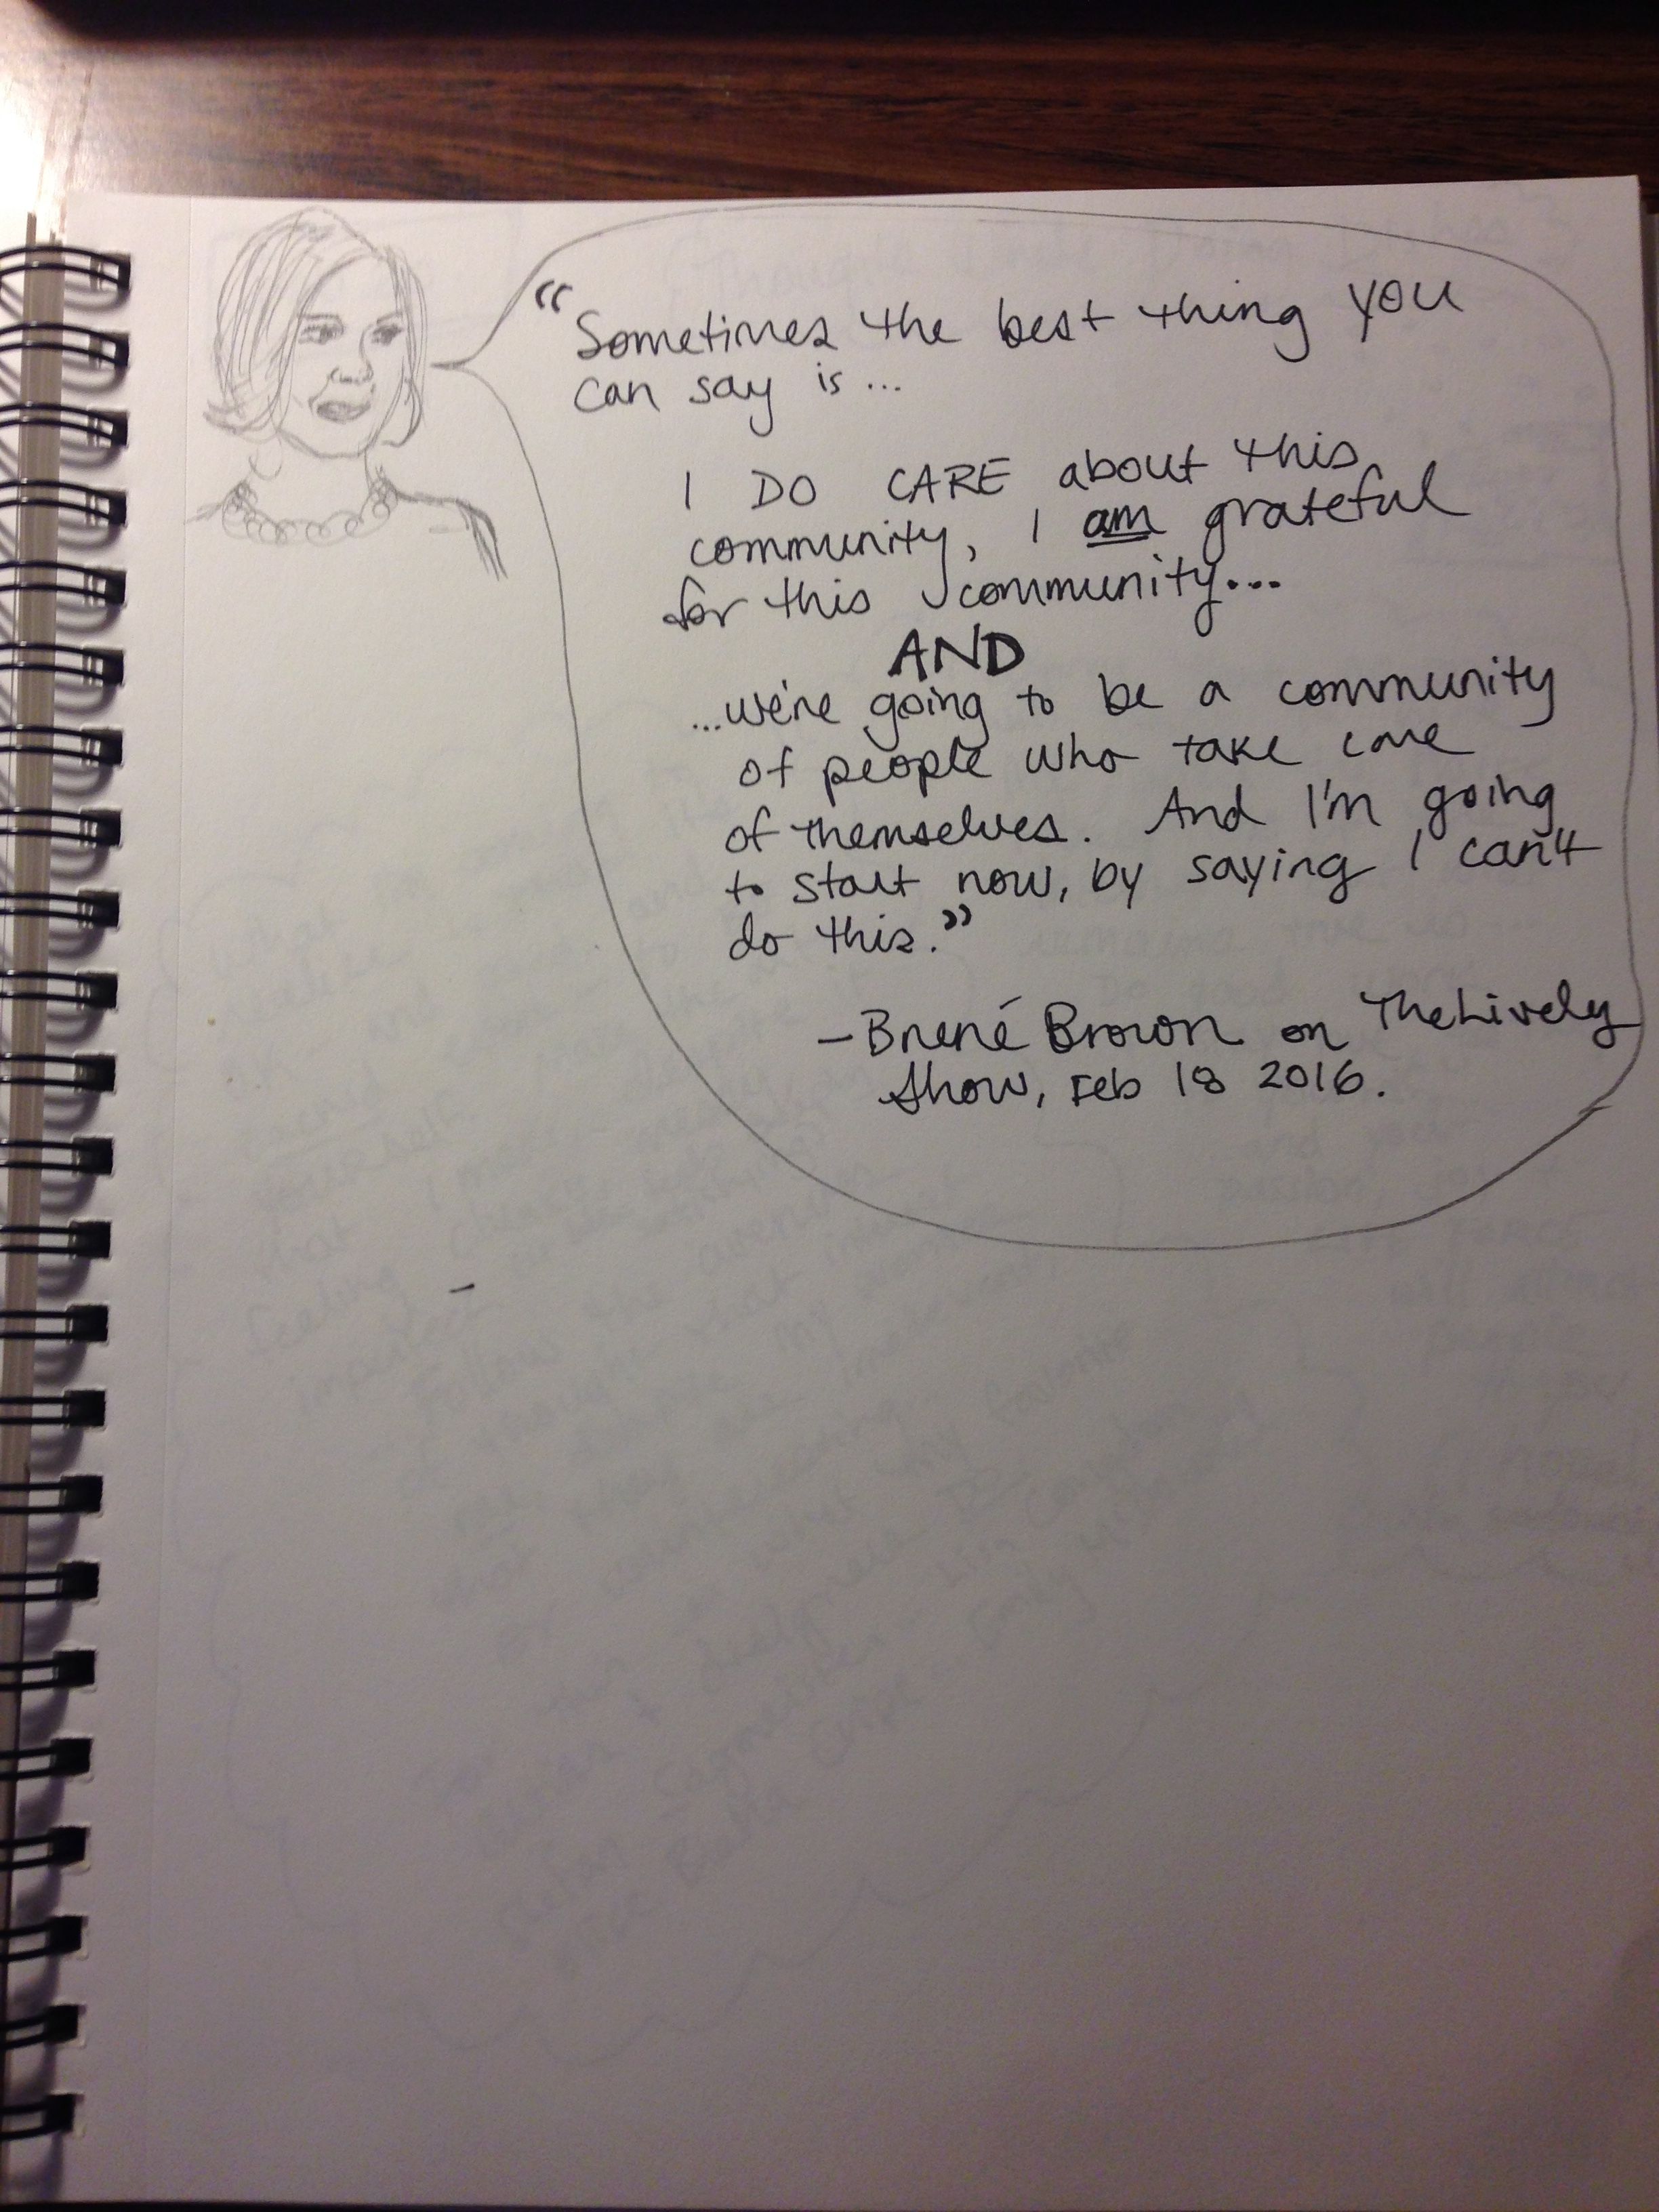 “Sometimes the best thing you
can say is...
I DO CARE about this
community, I am grateful
for this community...
AND
...we're going to be a community
of people who take care
of themselves. And I'm going
to start now, by saying I can't
do this.”
—Brené Brown on The Lively
Show, Feb 18 2016.